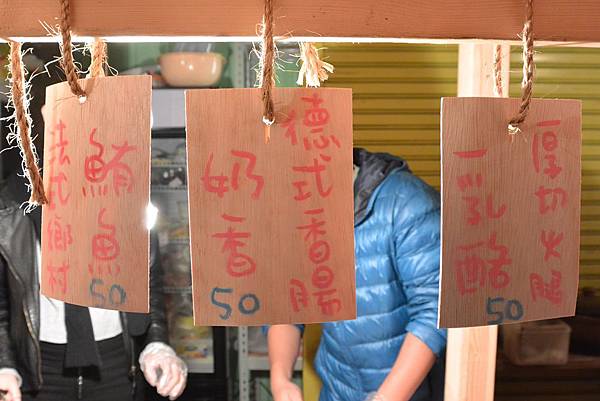 鮪魚
法式鄉村
50
德式香腸
奶香
50
厚切火腿
乳酪
50